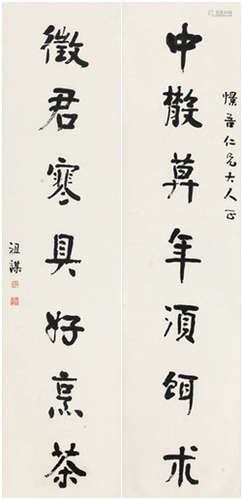 中散算年須餌术
徵君寒具好烹茶
仁兄大人正
祖謀